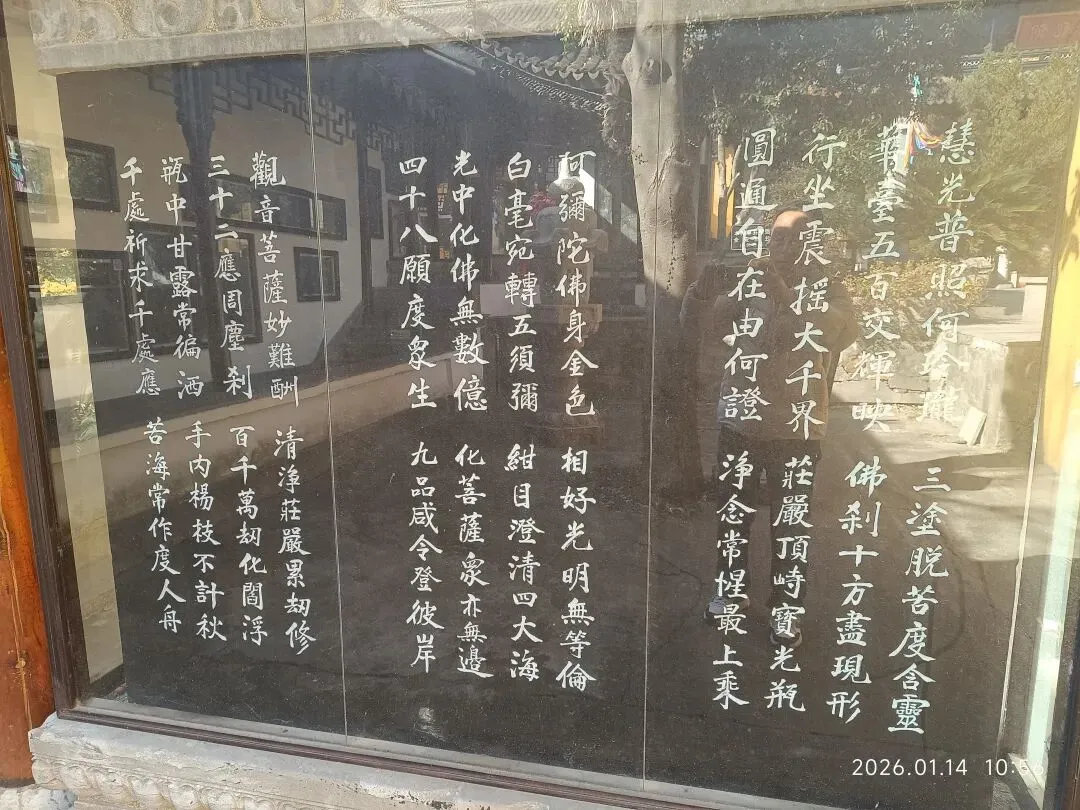 慧光普照何玲瓏 三塗脱苦度含靈
華臺五百交輝映 佛刹十方盡現形
行坐震摇大千界 莊嚴頂峙寶光瓶
圓通自在由何證 淨念常惺最上乘
阿彌陀佛身金色 相好光明無等倫
白毫宛轉五須彌 紺目澄清四大海
光中化佛無數億 化菩薩衆亦無邊
四十八願度衆生 九品咸令登彼岸
觀音菩薩妙難酬 清淨莊嚴累刼修
三十二應周塵刹 百千萬刼化閻浮
瓶中甘露常徧洒 手内楊枝不計秋
千處祈求千處應 苦海常作度人舟
2026.01.14